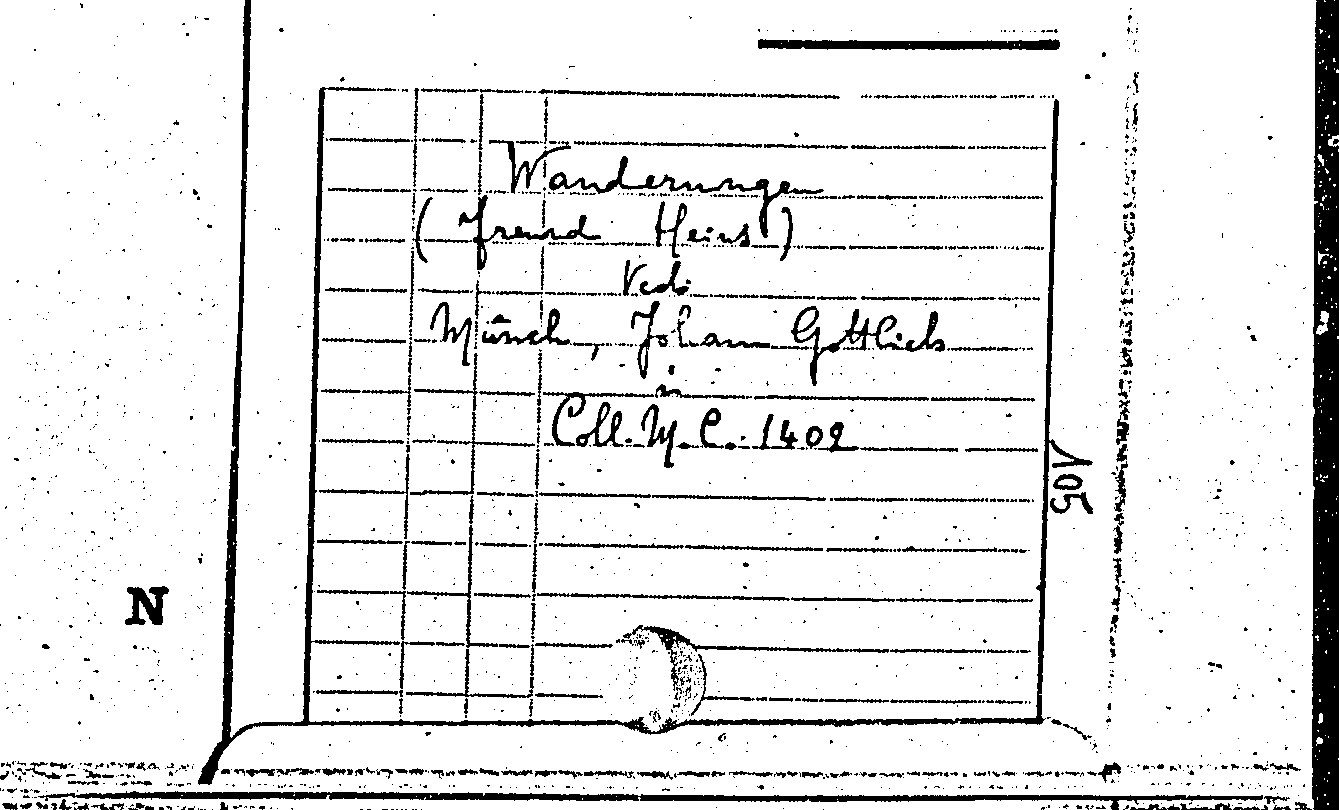 Wanderungen
(Freund Heins)
Vedi
Münch, Johann Gottlieb
in
Coll. M. C. 1402
105
N